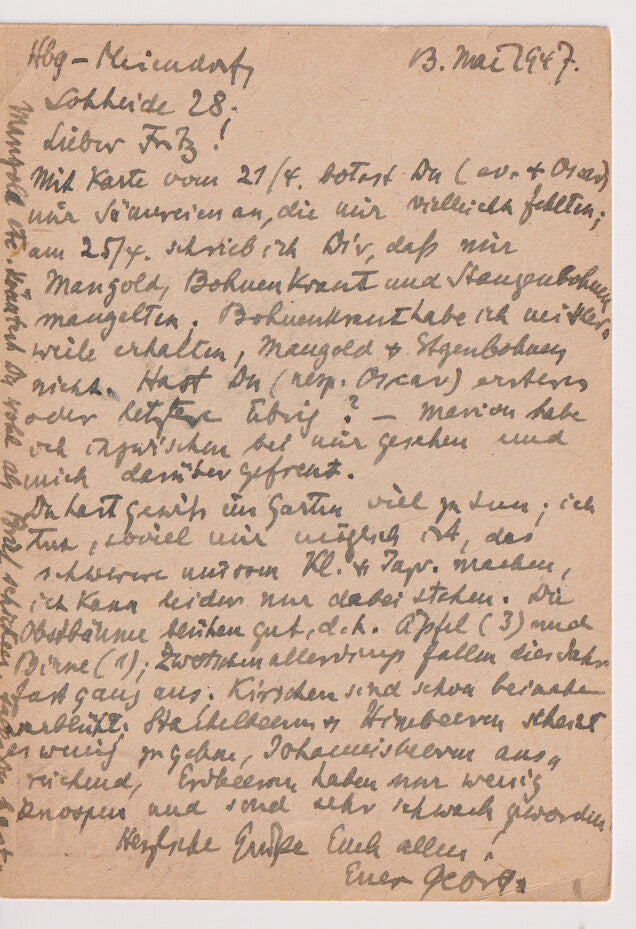 Hbg-Meiendorf, 13. Mai 1947.
Lohheide 28.
Lieber Fritz!
Mit Karte vom 21/4. botest Du (ev. + Oscar)
mir Sämereien an, die mir vielleicht fehlten;
am 25/4. schrieb ich Dir, daß mir
Mangold, Bohnenkraut und Stangenbohnen
mangelten. Bohnenkraut habe ich mittler-
weile erhalten, Mangold + Stgenbohnen
nicht. Hast Du (resp. Oscar) ersteres
oder letztere übrig? - Marion habe
ich inzwischen bei mir gesehen und
mich darüber gefreut.
Du hast gewiß im Garten viel zu tun; ich
tue, soviel mir möglich ist, das
schwerere muss Kl. + machen,
ich kann leider nur dabei stehen. Die
Obstbäume blühen gut, d.h. Äpfel (3) und
Birne (1); Zwetschen allerdings fallen dies Jahr
fast ganz aus. Kirschen sind schon beinahe
verblüht. Stachelbeeren + Himbeeren scheint
es wenig zu geben, Johannisbeeren aus-
reichend, Erdbeeren haben nur wenig
Knospen und sind sehr schwach geworden.
Herzliche Grüße Euch allen!
Euer Georg.
Mangold etc. könntest Du wohl als Brief schicken.